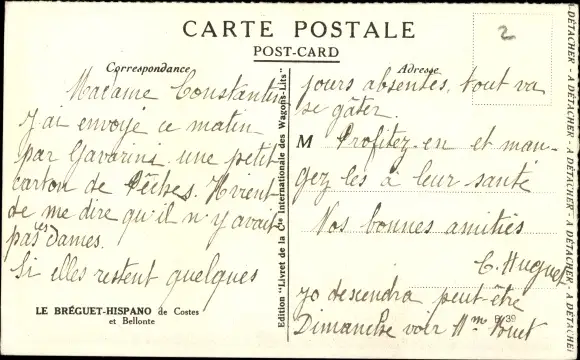 CARTE POSTALE
POST-CARD
Correspondance
Adresse
2
Madame Constantin
J'ai envoyé ce matin
par Gavarini une petit
carton de Pêches. Il vient
de me dire qu'il n'y avait
pas les Dames.
Si elles restent quelques
jours absentes, tout va
se gâter.
M Profitez-en et man-
gez les à leur santé
Nos bonnes amitiés
C. Hugues
descendra peut être
Dimanche voir Mme
B. 39
LE BRÉGUET-HISPANO de Costes
et Bellonte
Edition "Livret de la Cie Internationale des Wagons-Lits"
A DÉTACHER - A DÉTACHER - A DÉTACHER - A DÉTACHER - A DÉTACHER